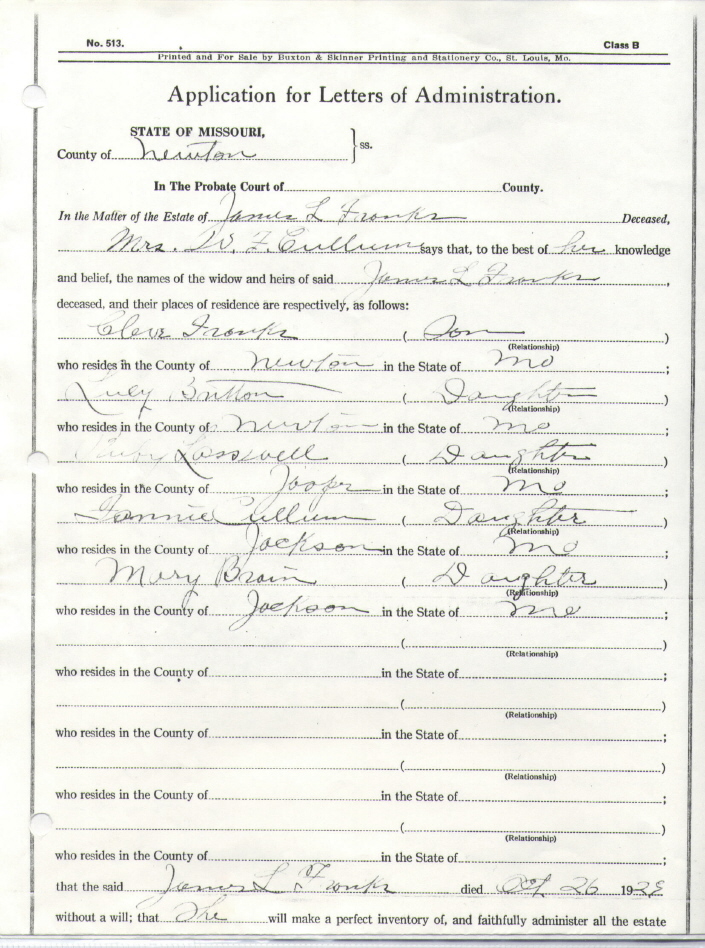 No. 513. Class B
Printed and For Sale by Buxton & Skinner Printing and Stationery Co., St. Louis, Mo.
Application for Letters of Administration.
STATE OF MISSOURI,
County of Newton } ss.
In The Probate Court of County.
In the Matter of the Estate of James L Franks Deceased,
Mrs. W. F. Cullum says that, to the best of her knowledge
and belief, the names of the widow and heirs of said James L Franks,
deceased, and their places of residence are respectively, as follows:
Cleve Franks ( Son )
(Relationship)
who resides in the County of Newton in the State of Mo ;
Lucy Britton ( Daughter )
(Relationship)
who resides in the County of Newton in the State of Mo ;
Ruby Lasswell ( Daughter )
(Relationship)
who resides in the County of Jasper in the State of Mo ;
Fannie Cullum ( Daughter )
(Relationship)
who resides in the County of Jackson in the State of Mo ;
Mary ( Daughter )
(Relationship)
who resides in the County of Jackson in the State of Mo ;
( )
(Relationship)
who resides in the County of in the State of ;
( )
(Relationship)
who resides in the County of in the State of ;
( )
(Relationship)
who resides in the County of in the State of ;
( )
(Relationship)
who resides in the County of in the State of ;
that the said James L Franks died Oct 26 19
without a will; that She will make a perfect inventory of, and faithfully administer all the estate